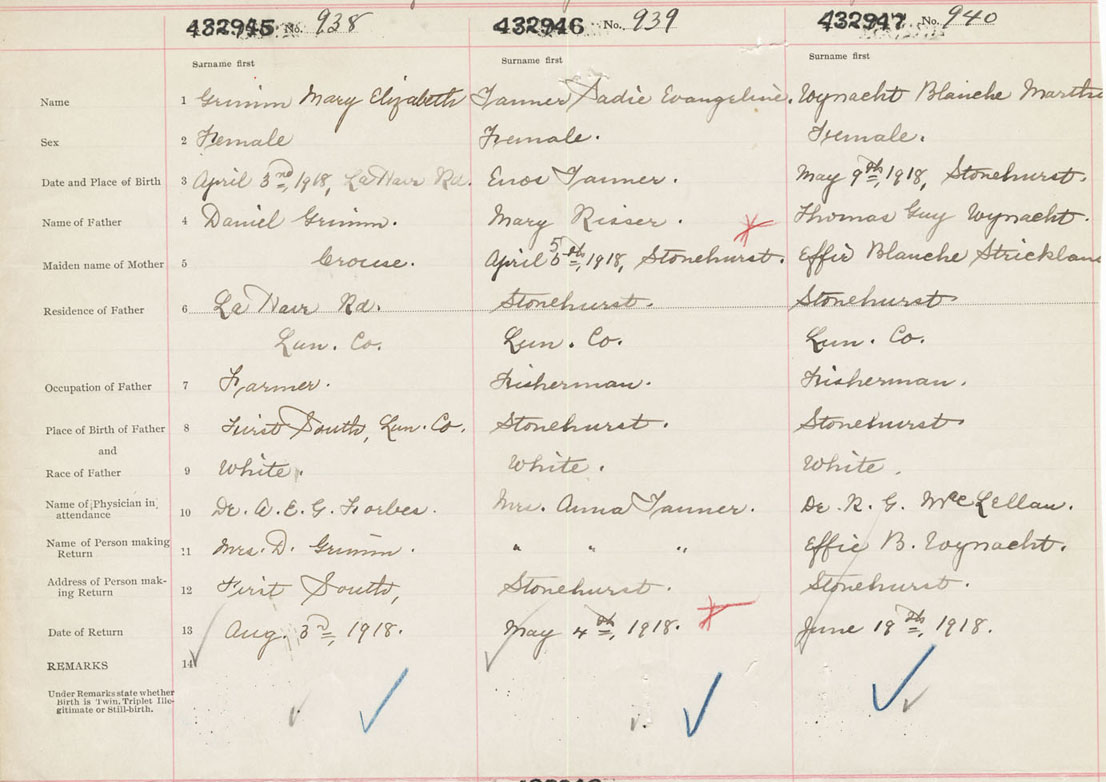 432945 No. 938 432946 No. 939 432947 No. 940
Surname first Surname first Surname first
Name 1 Grimm Mary Elizabeth Tanner Sadie Evangeline. Wynacht Blanche Martha
Sex 2 Female Female. Female.
Date and Place of Birth 3 April 3rd, 1918, La Have Rd. Enos Tanner. May 9th, 1918, Stonehurst.
Name of Father 4 Daniel Grimm. Mary Risser. Thomas Guy Wynacht.
Maiden name of Mother 5 Crouse. April 5th, 1918, Stonehurst. Effie Blanche Strickland
Residence of Father 6 La Have Rd. Stonehurst. Stonehurst
Lun. Co. Lun. Co. Lun. Co.
Occupation of Father 7 Farmer. Fisherman. Fisherman.
Place of Birth of Father 8 First South, Lun. Co. Stonehurst. Stonehurst
and
Race of Father 9 White. White. White.
Name of Physician in attendance 10 Dr. A. E. G. Forbes. Mrs. Anna Tanner. Dr. R. G. McLellan.
Name of Person making Return 11 Mrs. D. Grimm. " " " Effie B. Wynacht.
Address of Person making Return 12 First South, Stonehurst. Stonehurst.
Date of Return 13 Aug. 3rd, 1918. May 4th, 1918. June 19th, 1918.
REMARKS 14
Under Remarks state whether
Birth is Twin, Triplet Ille-
gitimate or Still-birth.